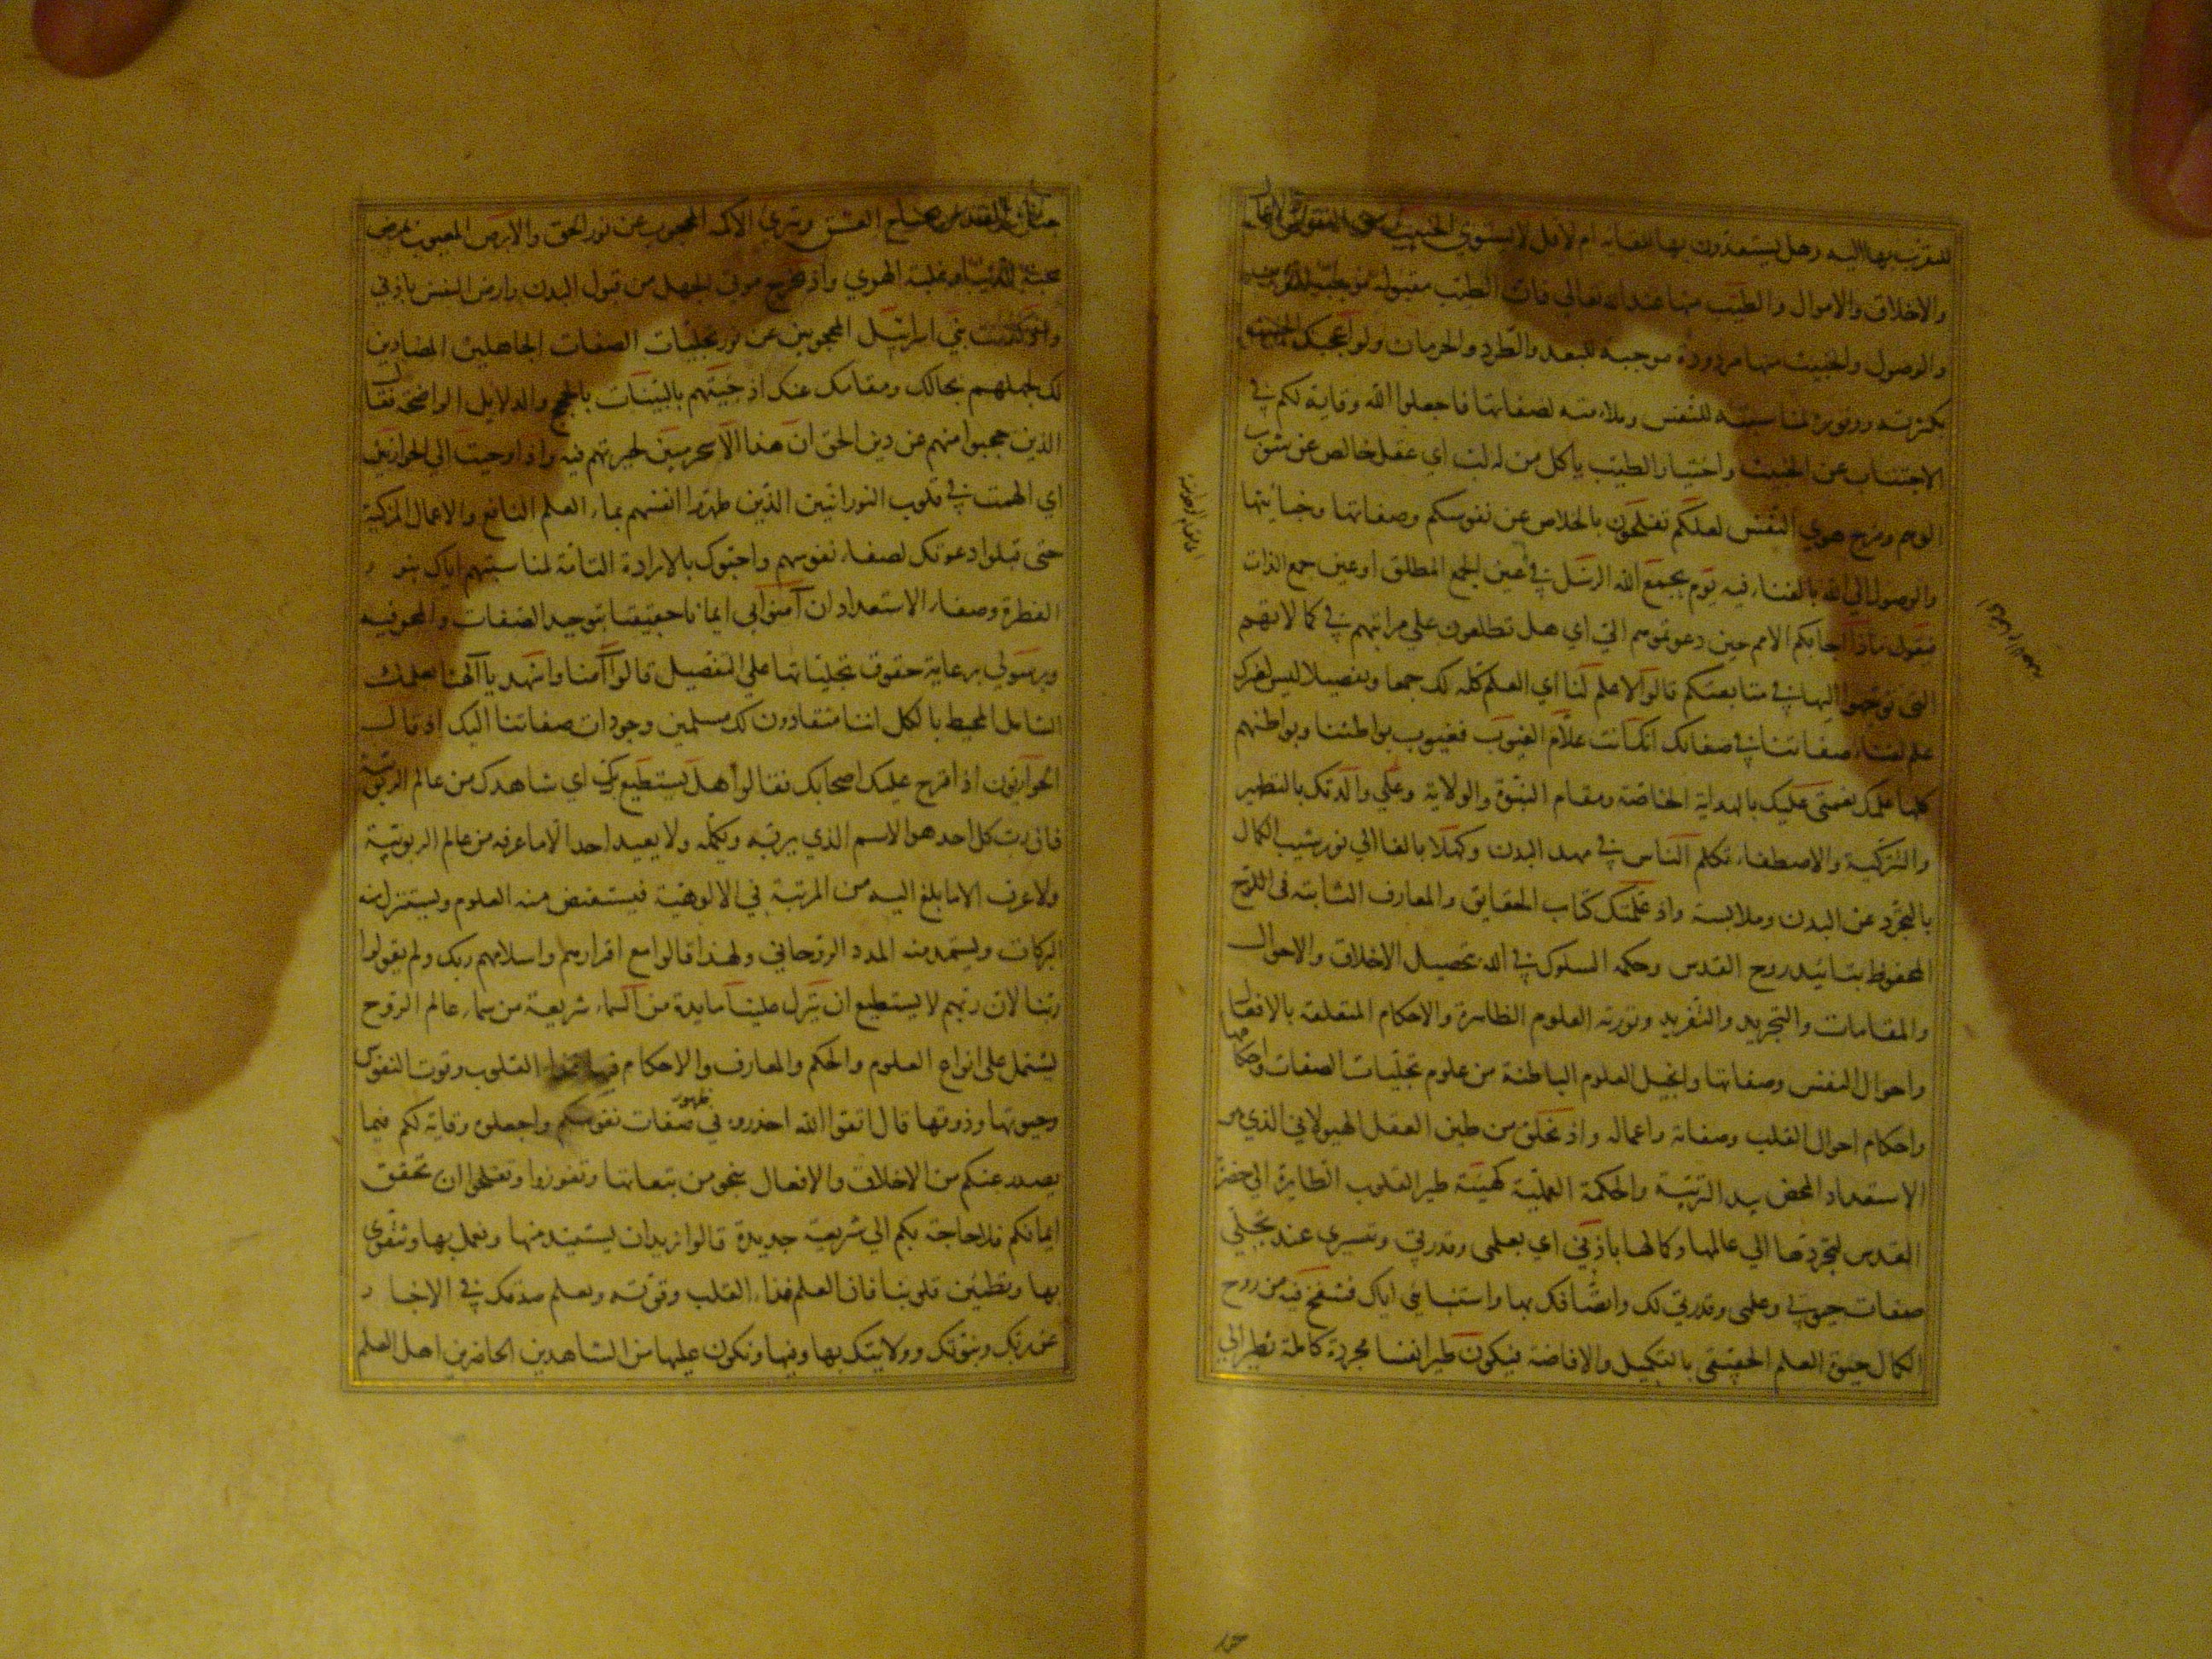 للتقرب بها اليه وهل يستعدون بها للقائه ام لا قل لا يستوي الخبيث من النفوس والاعمال
والاخلاق والاموال والطيب منها عند الله تعالى فان الطيب مقبول موجب للقرب
والوصول والخبيث منها مردود موجبه للبعد والطرد والحرمان ولو اعجبك الخبيث
بكثرته ووفوره لمناسبته للنفس وملاءمته لصفاتها فاجعلوا الله وقاية لكم في
الاجتناب عن الخبيث واختيار الطيب يا كل من له لب اي عقل خالص عن شوب
الوهم ومزج هوي النفس لعلكم تفلحون بالخلاص عن نفوسكم وصفاتها وخبايثها
والوصول الي الله بالفناء فيه يوم يجمع الله الرسل في عين الجمع المطلق او عين جمع الذات
فيقول ماذا اجابكم الامم حين دعوتموهم الي اي هل تطلعون علي مراتبهم في كمالاتهم
التي توجهوا اليها في متابعتكم قالوا لا علم لنا اي العلم كله لك جمعا وتفصيلا ليس لغيرك
علم لفناء صفاتنا في صفاتك انك انت علام الغيوب فغيوب بواطننا وبواطنهم
كلها علمك نعمتي عليك بالهداية الخاصة ومقام النبوة والولاية وعلي والدتك بالتطهير
والتزكية والاصطفاء تكلم الناس في مهد البدن وكهلا بالغا الي نور شيب الكمال
بالتجرد عن البدن وملابسة واذ علمتك كتاب الحقايق والمعارف الثابتة في اللوح
المحفوظ بتائيد روح القدس وحكمه السلوك في الله بتحصيل الاخلاق والاحوال
والمقامات والتجريد والتفريد وتورية العلوم الظاهرة والاحكام المتعلقة بالافعال
واحوال النفس وصفاتها وانجيل العلوم الباطنة من علوم تجليات الصفات واحكامها
واحكام احوال القلب وصفاته واعماله واذ تخلق من طين العقل الهيولاني الذي هو
الاستعداد المحض بيد التربية والحكمة العملية كهيئة طير القلوب الطايرة الي حضرة
القدس لتجردها الي عالمها وكمالها باذني اي بعلمي وقدرتي وتيسري عند تجلي
صفات حيوتي وعلمي وقدرتي لك واتصافك بها واستنبائي اياك فتنفخ فيه من روح
الكمال حيوة العلم الحقيقي بالتكميل والافاضة فيكون طيرا نفسا مجردة كاملة تطير الي
القدس بجناح العشق وتبري الاكمه المحجوب عن نور الحق والابرص المعيوب بمرض
محبة الدنيا وغلبة الهوي واذ تخرج موتي الجهل من قبول البدن وارض النفس باذني
واذ كففت بني اسرائيل المحجوبين عن نور تجليات الصفات الجاهلين المضادين
لك لجهلهم بحالك ومقامك عنك اذ جئتهم بالبينات بالحجج والدلايل الواضحة فقال
الذين حجبوا منهم عن دين الحق ان هذا الا سحر مبين لحيرتهم فيه واذ اوحيت الي الحواريين
اي الهمت في قلوب النورانيين الذين طهروا انفسهم بماء العلم النافع والاعمال المزكية
حتي قبلوا دعوتك لصفاء نفوسهم واحبوك بالارادة التامة لمناسبتهم اياك بنور
الفطرة وصفاء الاستعداد ان آمنوا بي ايمانا حقيقيا بتوحيد الصفات والمحو فيه
وبرسولي برعاية حقوق تجلياتها علي التفصيل قالوا آمنا واشهد يا آلهنا بعلمك
الشامل المحيط بالكل اننا منقادون لك مسلمين وجودات صفاتنا اليك اذ قال
الحواريون اذ اقترح عليك اصحابك فقالوا هل يستطيع ربك اي شاهدك من عالم الربوبية
فان رب كل احد هو الاسم الذي يربه ويكمله ولا يعبد احد الا ما عرفه من عالم الربوبية
ولا عرف الا ما بلغ اليه من المرتبة في الالوهية فيستفيض منه العلوم ويستنزل منه
البركات ويستمد منه المدد الروحاني ولهذا قالوا مع اقرارهم واسلامهم ربك ولم يقولوا
ربنا لان ربهم لا يستطيع ان ينزل علينا مايدة من السماء شريعة من سماء عالم الروح
تشتمل علي انواع العلوم والحكم والمعارف والاحكام فيها غذاء القلوب وقوت النفوس
وحيوتها وذوقها قال اتقوا الله احذروه في ظهور صفات نفوسكم واجعلوه وقاية لكم فيما
يصدر عنكم من الاخلاق والافعال ينجو من تبعاتها وتفوزوا وتفلحوا ان تحقق
ايمانكم فلا حاجة بكم الي شريعة جديدة قالوا نريد ان نستفيد منها ونعمل بها ونتقوي
بها وتطمئن قلوبنا فان العلم غذاء القلب وقوته ونعلم صدقك في الاخبار
عن ربك ونبوتك وولايتك بها وفيها ونكون عليها من الشاهدين الحاضرين اهل العلم